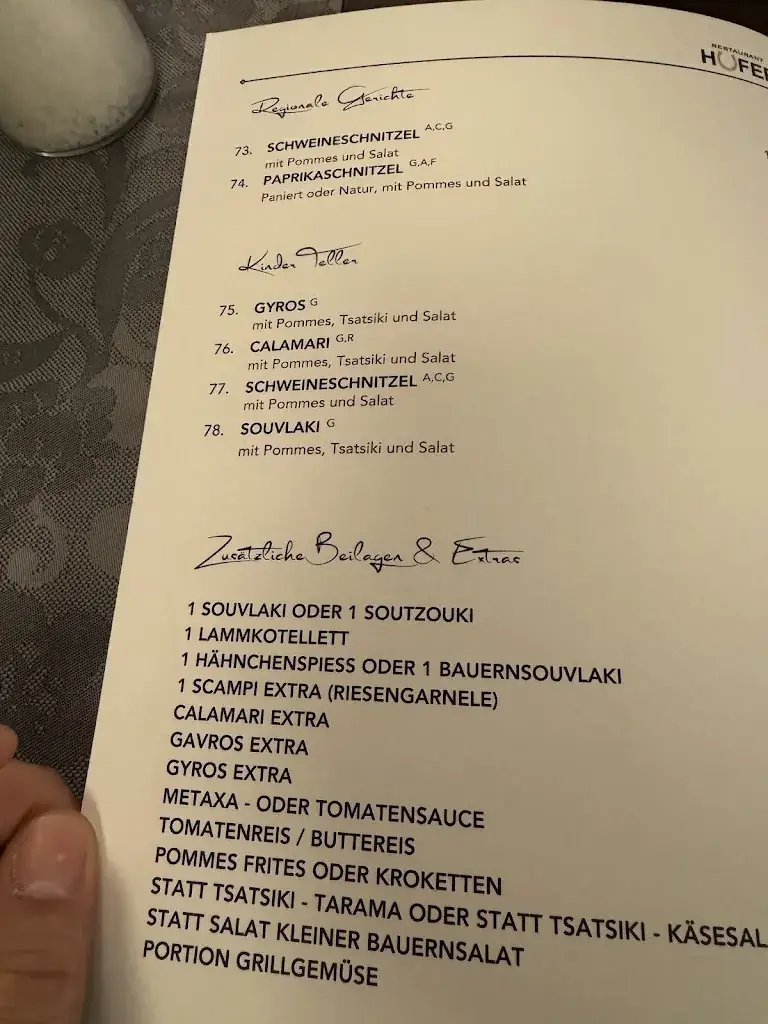 RESTAURANT
Regionale Gerichte
73. SCHWEINESCHNITZEL A,C,G
mit Pommes und Salat
74. PAPRIKASCHNITZEL G,A,F
Paniert oder Natur, mit Pommes und Salat
Kinder Teller
75. GYROS G
mit Pommes, Tsatsiki und Salat
76. CALAMARI G,R
mit Pommes, Tsatsiki und Salat
77. SCHWEINESCHNITZEL A,C,G
mit Pommes und Salat
78. SOUVLAKI G
mit Pommes, Tsatsiki und Salat
Zusätzliche Beilagen & Extras
1 SOUVLAKI ODER 1 SOUTZOUKI
1 LAMMKOTELLETT
1 HÄHNCHENSPIESS ODER 1 BAUERNSOUVLAKI
1 SCAMPI EXTRA (RIESENGARNELE)
CALAMARI EXTRA
GAVROS EXTRA
GYROS EXTRA
METAXA - ODER TOMATENSAUCE
TOMATENREIS / BUTTEREIS
POMMES FRITES ODER KROKETTEN
STATT TSATSIKI - TARAMA ODER STATT TSATSIKI - KÄSESAL
STATT SALAT KLEINER BAUERNSALAT
PORTION GRILLGEMÜSE